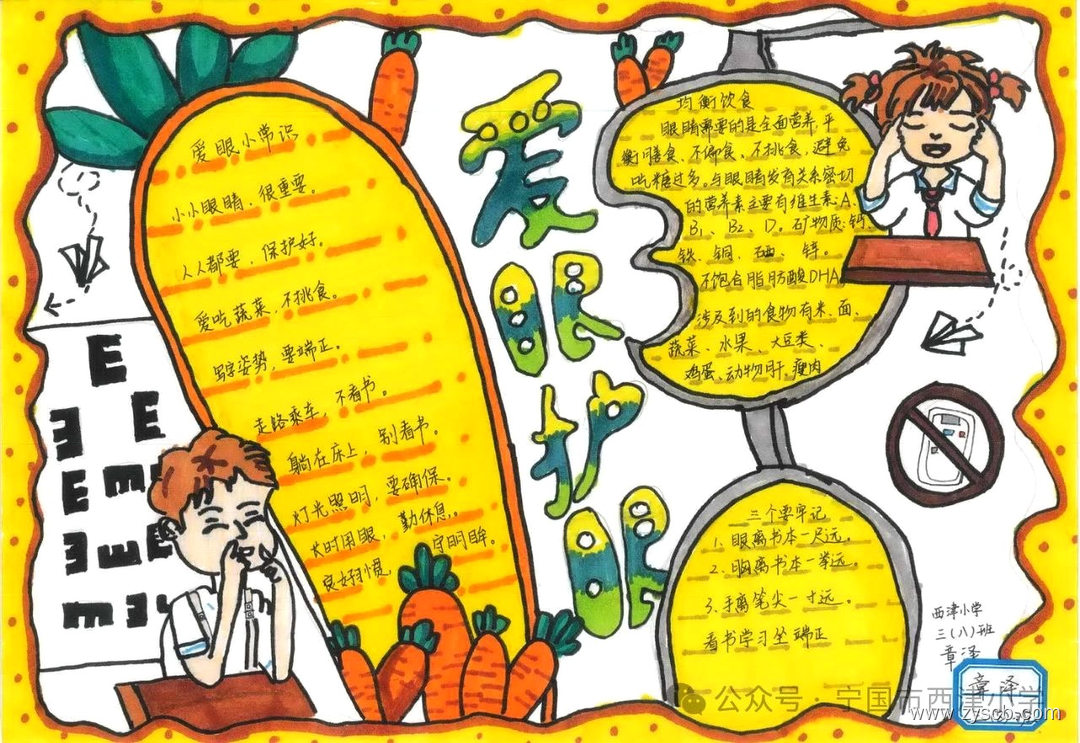 爱眼护眼
爱眼小常识
小小眼睛，很重要。
人人都要，保护好。
爱吃蔬菜，不挑食。
写字姿势，要端正。
走路乘车，不看书。
躺在床上，别看书。
灯光照明，要确保。
太时用眼，勤休息。
良好习惯，守明眸。
均衡饮食
眼睛需要的是全面营养，平
衡膳食、不偏食、不挑食，避免
吃糖过多。与眼睛发育关系密切
的营养素主要有维生素：A、
B1、B2、D。矿物质：钙、
铁、铜、硒、锌。
不饱合脂肪酸DHA。
涉及到的食物有米、面、
蔬菜、水果、大豆类、
鸡蛋、动物肝、瘦肉
三个要牢记
1、眼离书本一尺远。
2、胸离书本一拳远。
3、手离笔尖一寸远。
看书学习坐端正
E
E E
E m
E E
m
西津小学
三（八）班
章泽
章泽
公众号·宁国市西津小学
www.zyscb.com